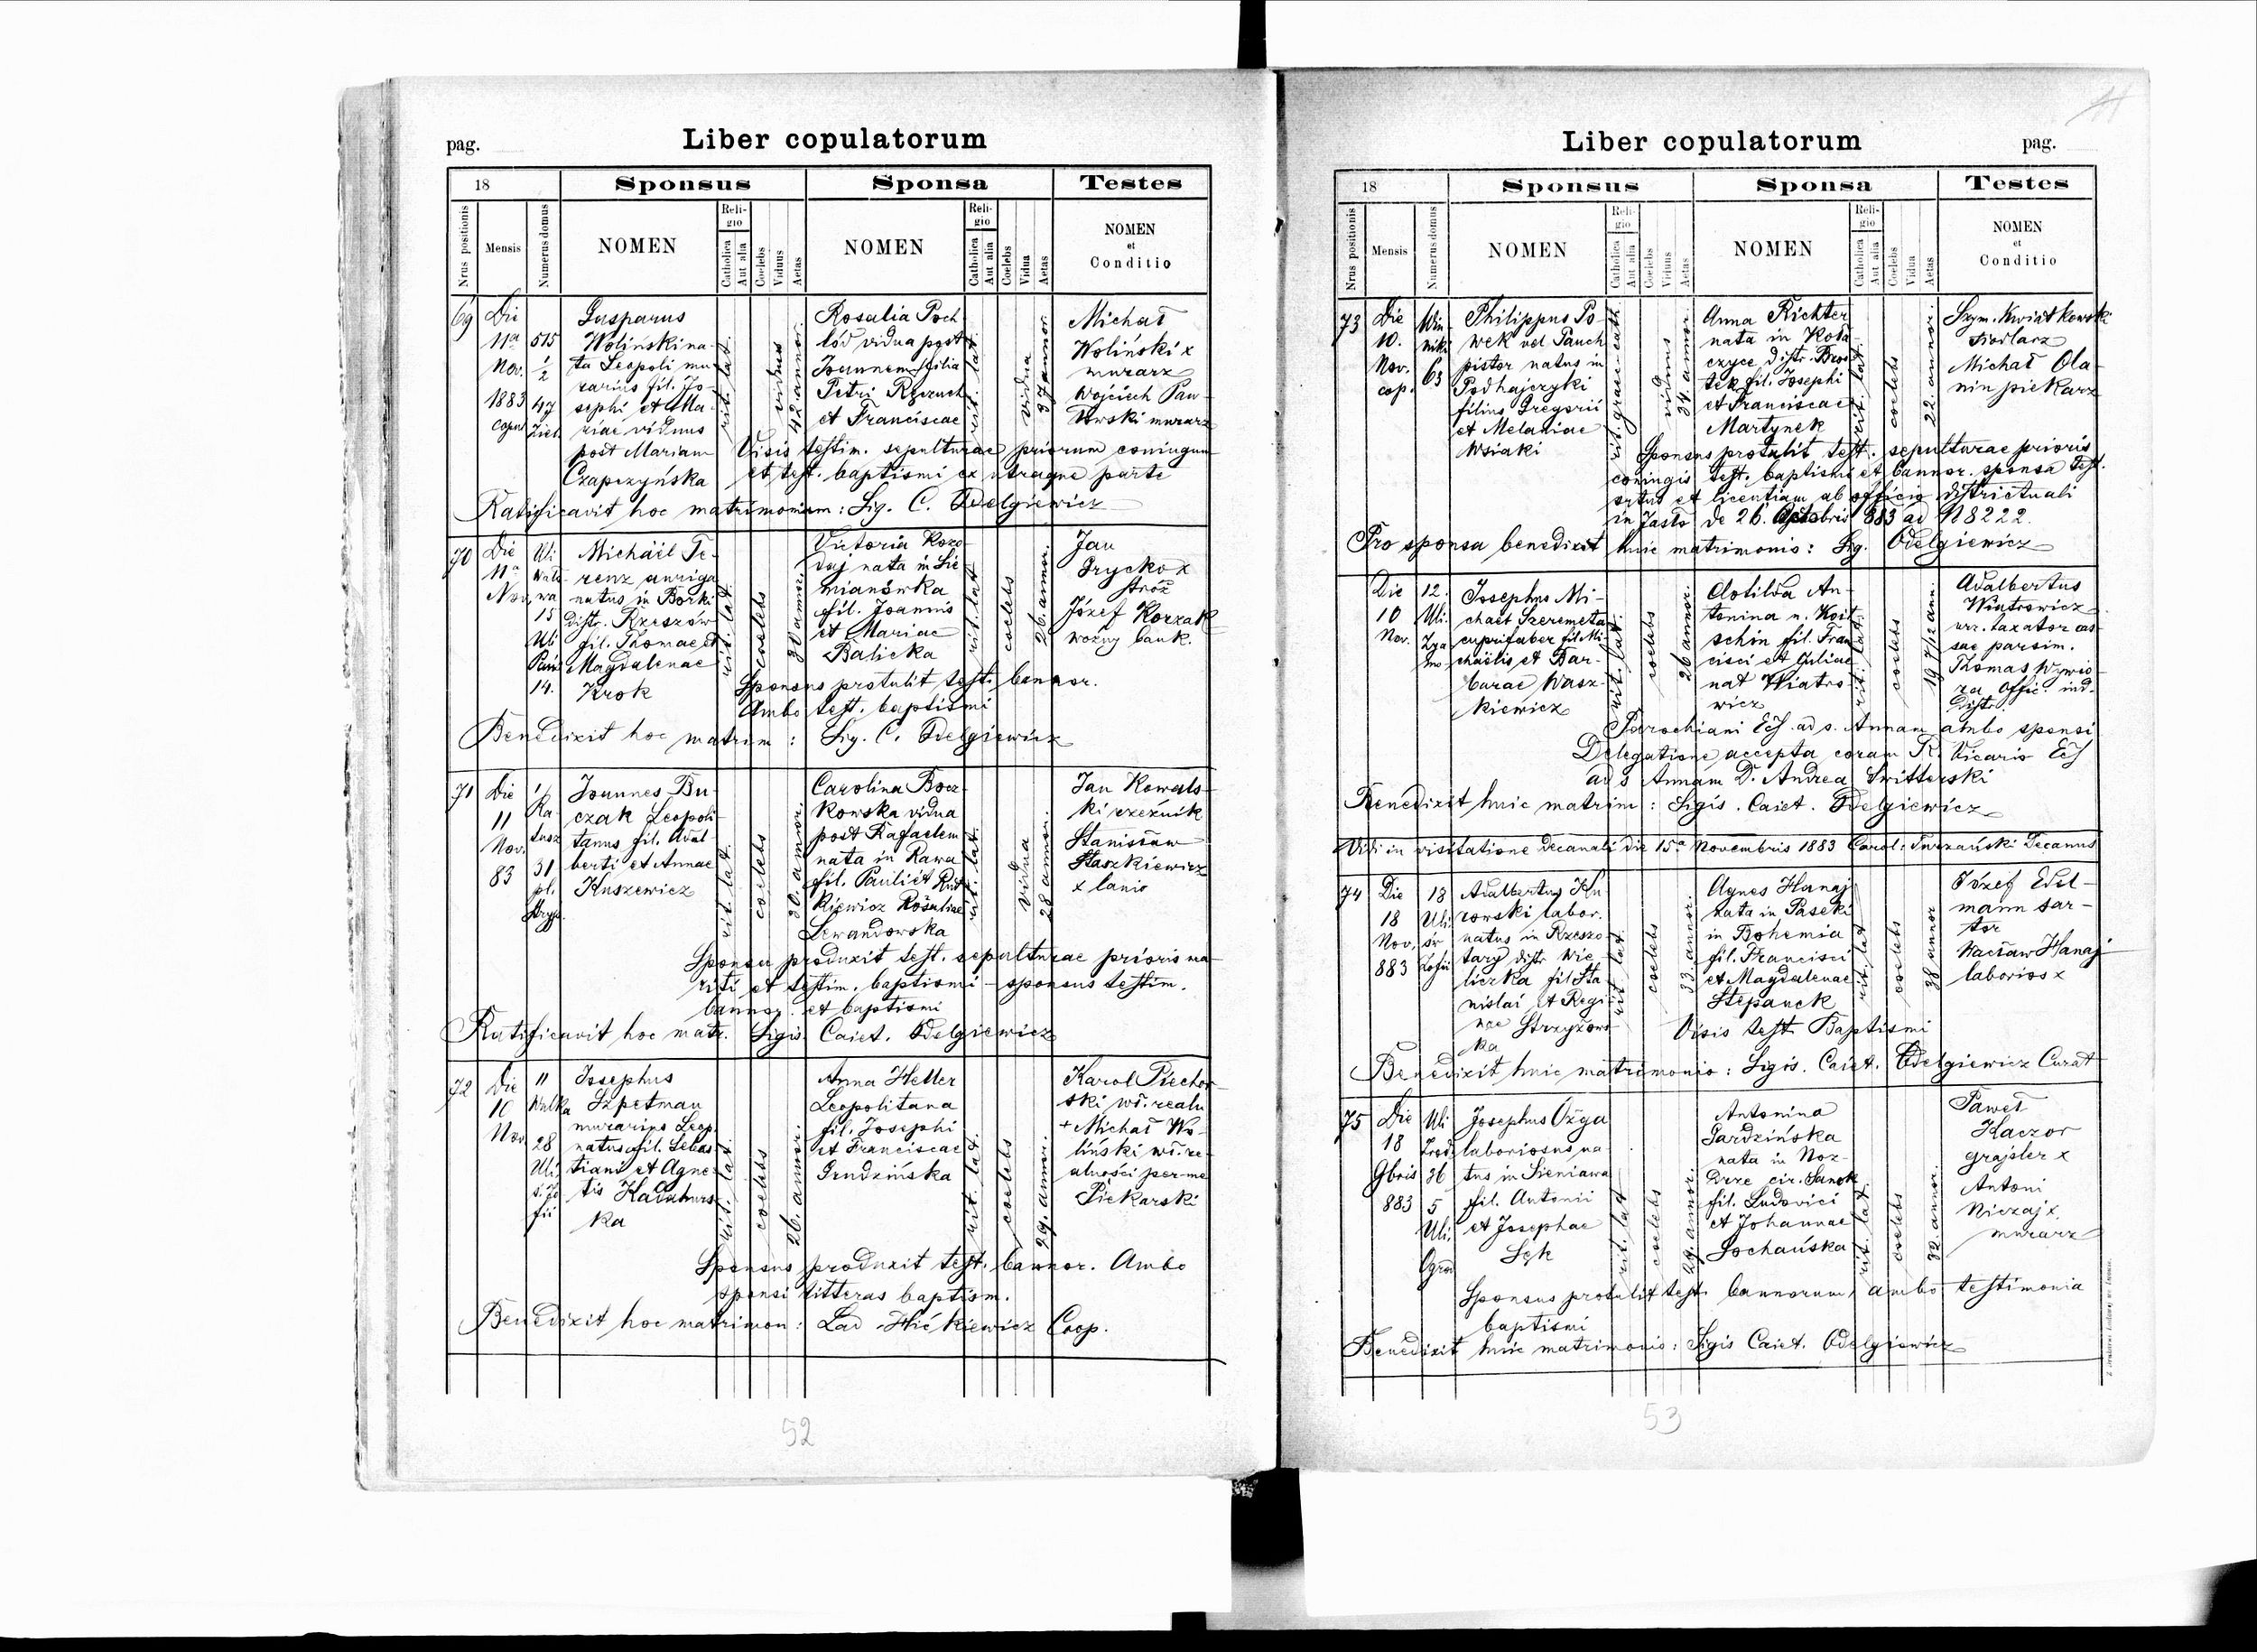 pag.
Liber copulatorum
18
Sponsus
Sponsa
Testes
Nrus positionis
Mensis
Numerus domus
NOMEN
Religio
Catholica
Aut alia
Coelebs
Viduus
Aetas
NOMEN
Religio
Catholica
Aut alia
Coelebs
Vidua
Aetas
NOMEN
et
Conditio
69
Die
11a
Nov.
1883
515
1/2
47
Gasparus
Woliński na-
ta Leopoli mu-
rarius fil. Jo-
sephi et Ma-
riae viduus
post Mariam
Czapczyńska
rit. lat.
viduus
42 annor.
Rosalia Poch-
łód vidua post
Joannem filia
Petri
et Franciscae
rit. lat.
vidua
37 annor.
Michał
Woliński x
murarz
Wojciech Paw-
łowski murarz
Visis testim. sepulturae priorum coniugum
et test. baptismi ex utraque parte
Ratificavit hoc matrimonium: Sig. C. Odelgiewicz
70
Die
11a
Nov.
Uli
wa
15
Uli
14.
Michäil Te-
renz auriga
natus in Borki
distr. Rzeszów
fil. Thomae et
Magdalenae
Krok
rit. lat.
coelebs
30 annor.
Victoria Kozo-
duj nata in Sie
mianówka
fil. Joannis
et Mariae
Balicka
rit. lat.
coelebs
26 annor.
Jan
Hrycko x
stróż
Józef Korzak
woźny bank.
Sponsus protulit test. bannor.
Ambo test. baptismi
Benedixit hoc matrim: Sig. C. Odelgiewicz
71
Die
11
Nov.
83
31
pl.
Joannes Bu-
czak Leopoli-
tanus fil. Adal-
berti et Annae
Kuszewicz
rit. lat.
coelebs
30 annor.
Carolina Bocz-
kowska vidua
post Rafaelem
nata in Rawa
fil. Pauli et Rut
kiewicz Rosaliae
Lewandowska
rit. lat.
vidua
28 annor.
Jan Kowals-
ki rzeźnik
Stanisław
Staszkiewicz
x lanio
Sponsa produxit test. sepulturae prioris ma-
riti et testim. baptismi - sponsus testim.
bannor. et baptismi
Ratificavit hoc matr. Sigis. Caiet. Odelgiewicz
72
Die
10
Nov.
11
Wulka
28
Uli.
s. Zo
fii
Josephus
Szpetman
murarius Leop.
natus fil. Sebas-
tiani et Agne-
tis
ka
rit. lat.
coelebs
26. annor.
Anna Heller
Leopolitana
fil. Josephi
et Franciscae
Grudzińska
rit. lat.
coelebs
29. annor.
Karol Piechor-
ski wł. realn
+ Michał Wo-
liński wł. re-
alności per me
Piekarski
Sponsus produxit test. bannor. Ambo
sponsi litteras baptism.
Benedixit hoc matrimon: Lad. Hićkiewicz Coop.
52
Liber copulatorum
pag.
18
Sponsus
Sponsa
Testes
Nrus positionis
Mensis
Numerus domus
NOMEN
Religio
Catholica
Aut alia
Coelebs
Viduus
Aetas
NOMEN
Religio
Catholica
Aut alia
Coelebs
Vidua
Aetas
NOMEN
et
Conditio
73
Die
10.
Nov.
cop.
Win-
niki
63
Philippus Po-
wek vel Pauch
pistor natus in
Podhajczyki
filius Gregorii
et Melaniae
Wsiaki
rit. graec. cath.
viduus
34 annor.
Anna Richter
nata in Koła-
czyce distr. Bros-
tek fil. Josephi
et Franciscae
Martynek
rit. lat.
coelebs
22. annor.
Szym. Kwiatkowski
siodlarz
Michał Ola-
nin piekarz
Sponsus protulit test. sepulturae prioris
coniugis test. baptismi et bannor. sponsa test.
ortus et licentiam ab officio districtuali
in Jasło de 26. Octobris 883 ad N 8222.
Pro sponsa benedixit huic matrimonio: Sig. Odelgiewicz
Die
10
Nov.
12.
Uli.
Zyg
mo
Josephus Mi-
chael Szeremeta
cuprifaber fil. Mi-
chaëlis et Bar-
barae Wasz-
kiewicz
rit. lat.
coelebs
26 annor.
Clotilda An-
tonina n. Koit
schin fil. Fran-
cisci et Juliae
nat Wiatro-
wicz
rit. lat.
coelebs
19 7/12 ann.
Adalbertus
Wiatrowicz
urz. taxator cas-
sae parsim.
Thomas Wywio-
ra offic. ind.
distr.
Parochiani Ecl. ad s. Annam ambo sponsi
Delegatione accepta coram R. Vicario Ecl
ad s Annam D. Andrea Switterski
Benedixit huic matrim: Sigis. Caiet. Odelgiewicz
Vidi in visitatione decanali die 15a Novembris 1883 Carol. Turzański Decanus
74
Die
18
Nov.
883
18
Uli.
św
Zofii
Adalbertus Ku-
rowski labor.
natus in Rzeszo-
tary distr Wie
liczka fil Sta
nislai et Regi-
nae Strzyżows
ka
rit lat
coelebs
33. annor.
Agnes Hanaj
nata in Paseki
in Bohemia
fil. Francisci
et Magdalenae
Stepanek
rit. lat
coelebs
38 annor
Józef Edel-
mann sar-
tor
Wacław Hanaj
laborios x
Visis test. Baptismi
Benedixit huic matrimonio: Sigis. Caiet. Odelgiewicz Curat
75
Die
18
9bris
883
Uli
36
5
Uli.
Josephus Ożga
laboriosus na-
tus in Sieniawa
fil. Antonii
et Josephae
Sęk
rit. lat
coelebs
29. annor.
Antonina
Gardzińska
nata in Noz-
drze cir. Sanok
fil. Ludovici
et Johannae
Sochańska
rit. lat.
coelebs
32. annor.
Paweł
Kaczor
grajsler x
Antoni
Niczaj x
murarz
Sponsus protulit test. bannorum, ambo testimonia
baptismi
Benedixit huic matrimonio: Sigis Caiet. Odelgiewicz
53